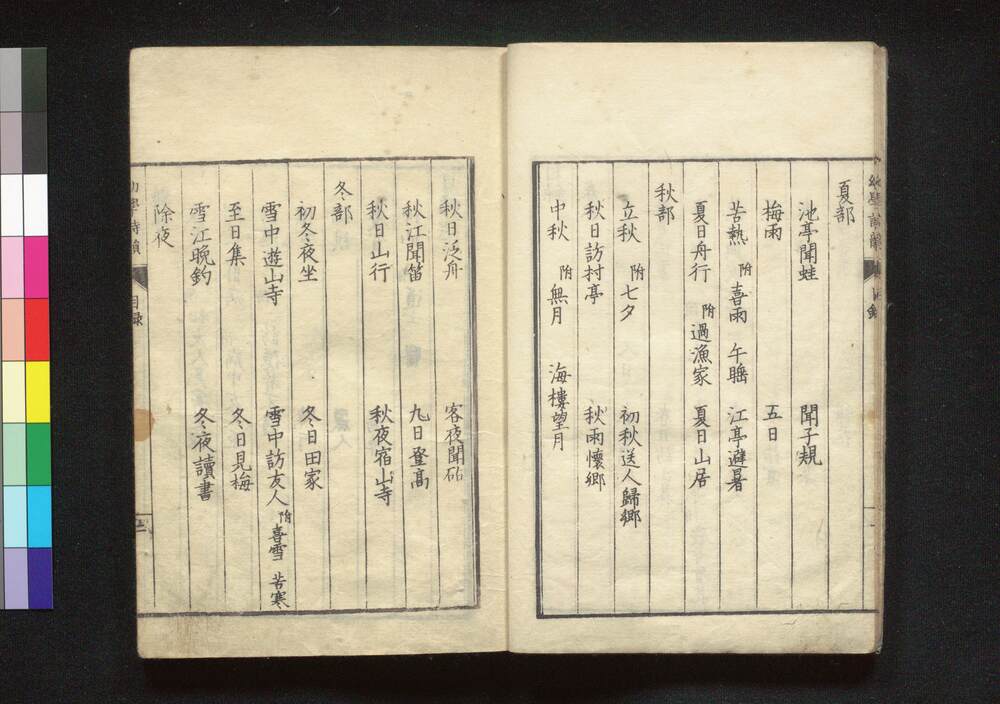 幼學詩韻 目錄
夏部
池亭聞蛙 聞子規
梅雨 五日
苦熱 附 喜雨 午睡 江亭避暑
夏日舟行 附 過漁家 夏日山居
秋部
立秋 附 七夕 初秋送人歸鄉
秋日訪村亭 秋雨懷鄉
中秋 附 無月 海樓望月
秋日泛舟 客夜聞砧
秋江聞笛 九日登高
秋日山行 秋夜宿山寺
冬部
初冬夜坐 冬日田家
雪中遊山寺 雪中訪友人 附 喜雪 苦寒
至日集 冬日見梅
雪江晚釣 冬夜讀書
除夜
幼學詩韻 目錄 二